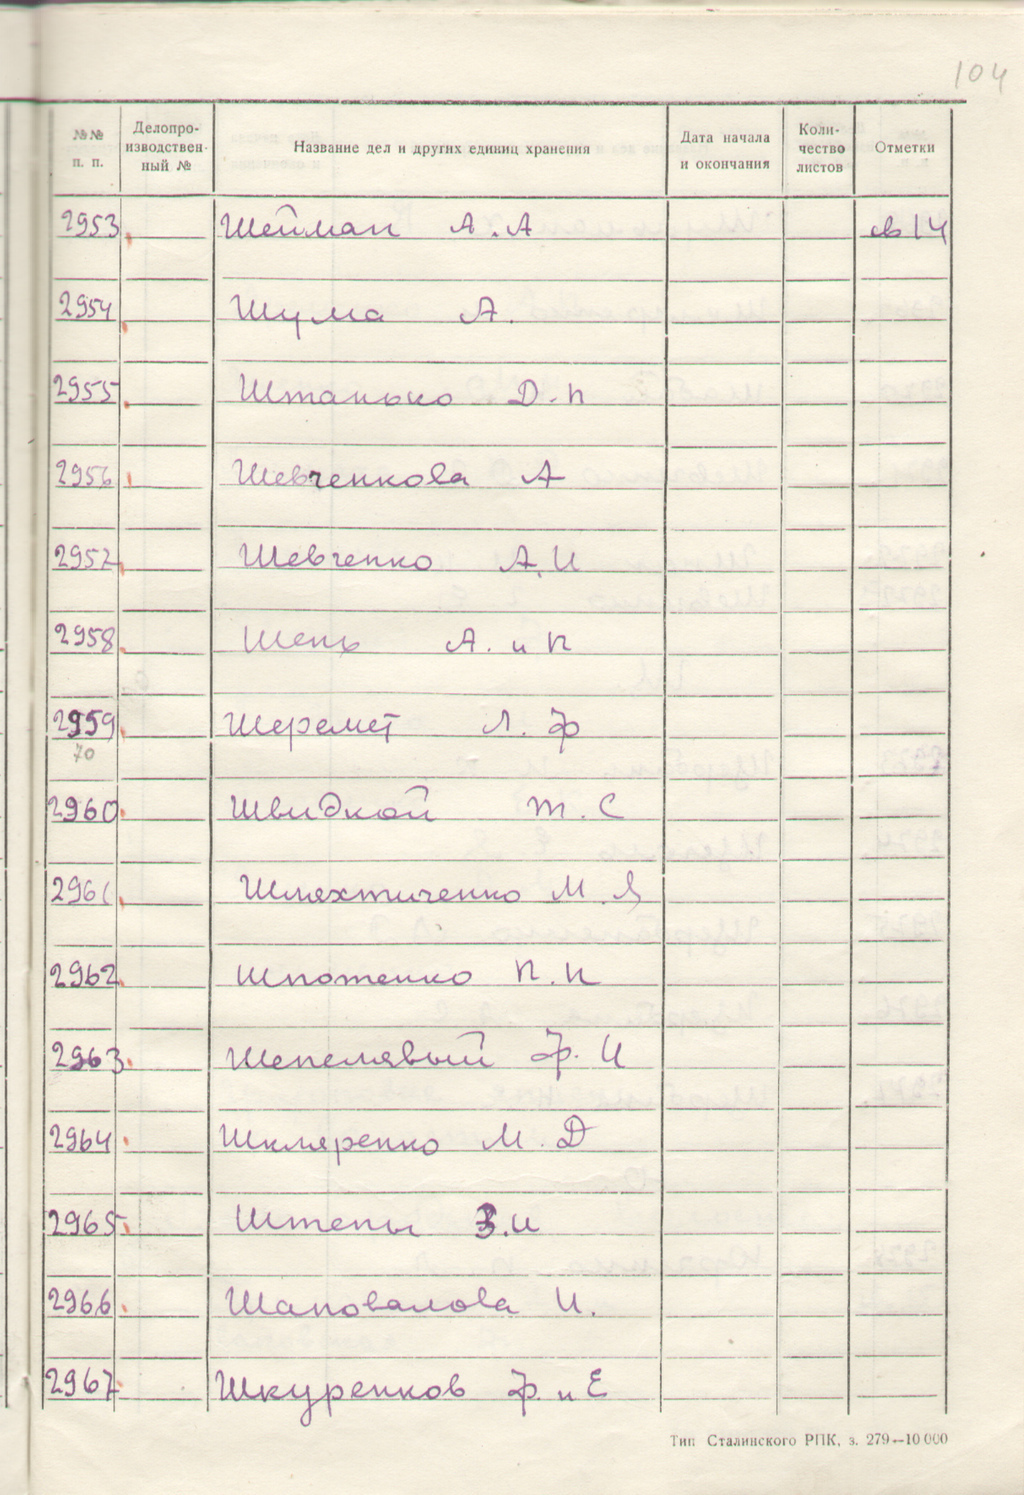 104
№№ п. п. Делопроизводственный № Название дел и других единиц хранения Дата начала и окончания Количество листов Отметки
2953 Шейман А. А св 14
2954 Шума А.
2955 Штанько Д. П
2956 Шевченкова А
2957 Шевченко А. И
2958 Шень А. и П
2959 Шеремет Л. Ф
70
2960 Швидкой Т. С
2961 Шляхтиченко М. Я
2962 Шпотенко П. И
2963 Шепелявый Ф. И
2964 Шкляренко М. Д
2965 Штепы З. И
2966 Шаповалова И.
2967 Шкуренков Ф. и Е
Тип Сталинского РПК, з. 279—10 000